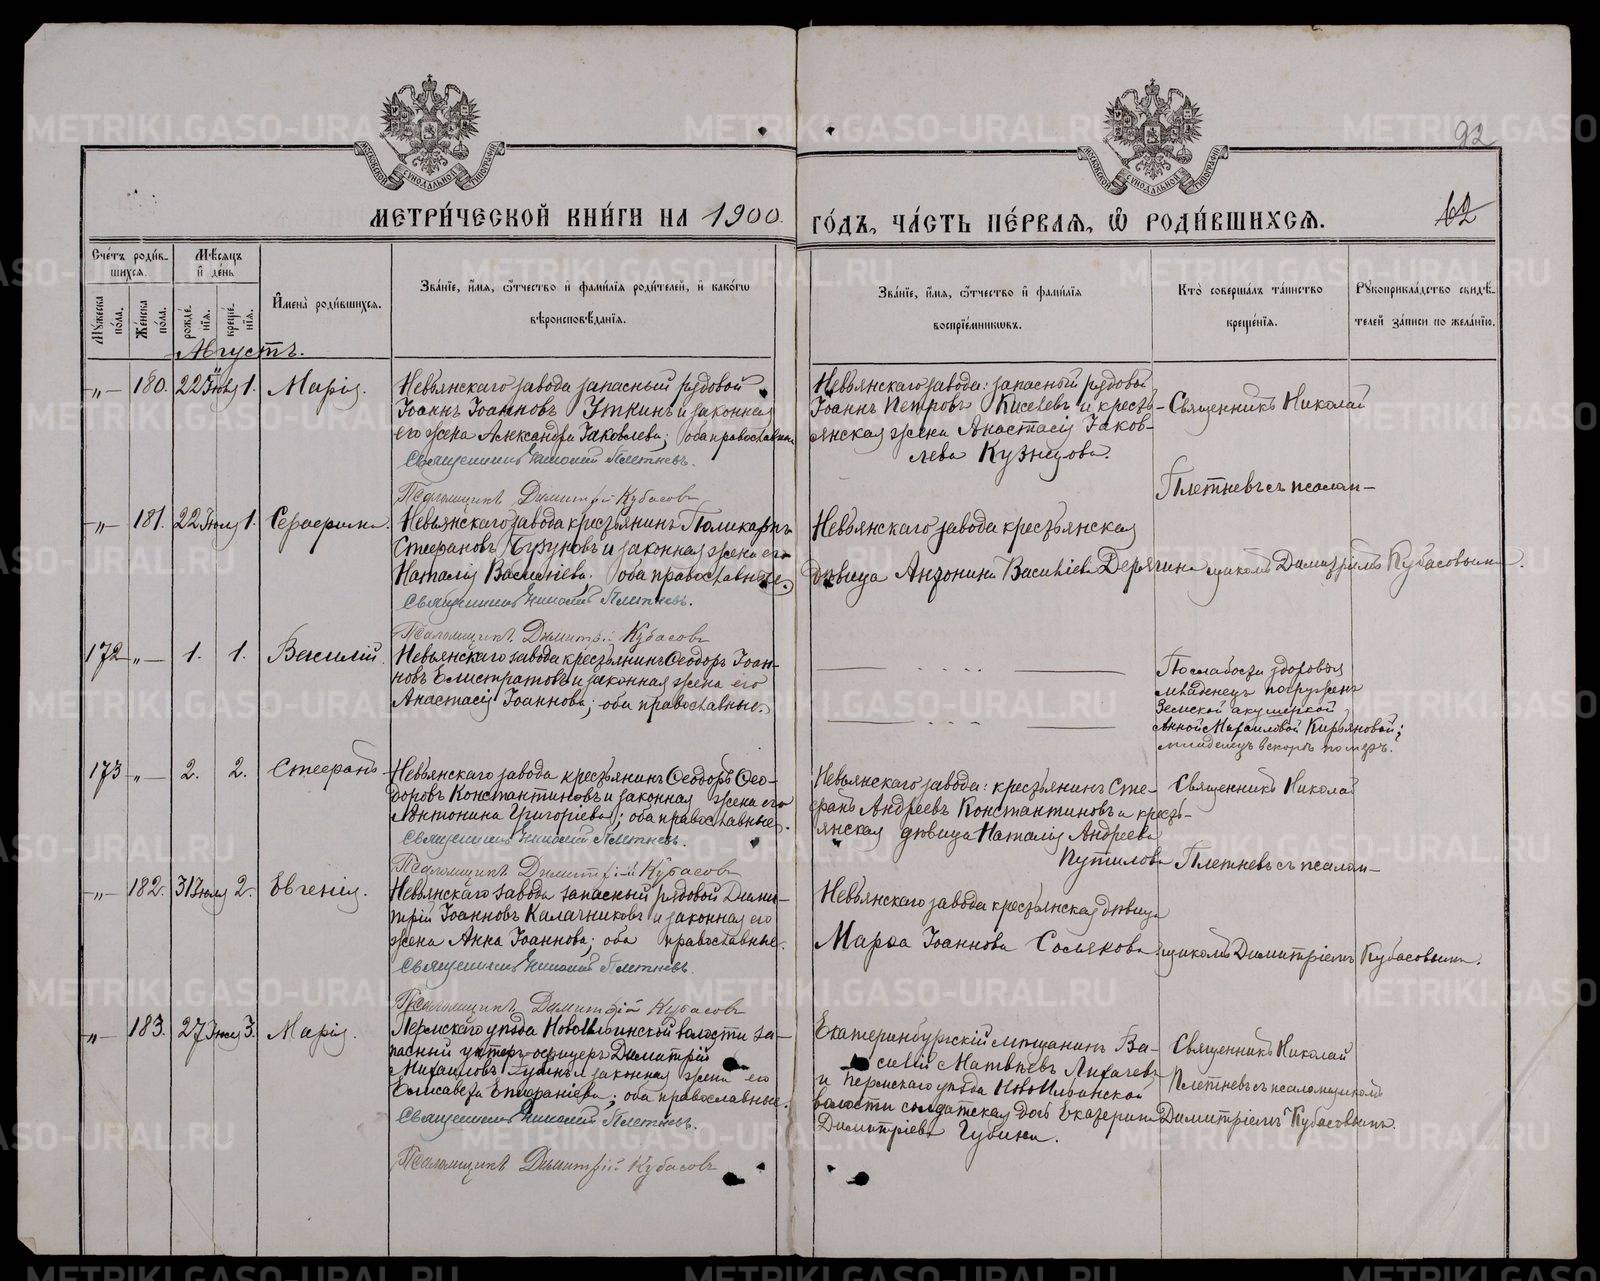 92
МЕТРИ́ЧЕСКОЙ КНИ́ГИ НА 1900. ГО́ДЪ, ЧА́СТЬ ПЕ́РВАЯ, Ѿ РОДИ́ВШИХСЯ.
62
Сче́тъ роди́в-
шихся.
Мѣ́сяцъ
и҆ де́нь
Му́жеска
по́ла.
Же́нска
по́ла.
рожде́-
нїя.
креще́-
нїя.
И҆мена̀ роди́вшихся.
Зва́нїе, и҆́мя, ѻ҆́тчество и҆ фами́лїя роди́телей, и҆ како́гѡ
вѣроисповѣ́данїя.
Зва́нїе, и҆́мя, ѻ҆́тчество и҆ фами́лїя
воспрїе́мникѡвъ.
Кто̀ соверша́лъ та́инство
креще́нїя.
Рꙋкоприкла́дство свидѣ́-
телей за́писи по жела́нїю.
Августъ.
„ — 180. 22 Іюля 1. Марія.
Невьянскаго завода запасный рядовой
Іоаннъ Іоанновъ Уткинъ и законная
его жена Александра Іаковлева; оба православные
Священникъ Николай Плетневъ.
Псаломщикъ Димитрій Кубасовъ
Невьянскаго завода: запасный рядовой
Іоаннъ Петровъ Киселевъ и кресть-
янская жена Анастасія Іаков-
лева Кузнецова.
Священникъ Николай
Плетневъ съ псалом-
„ — 181. 22 Іюля 1. Серафима.
Невьянскаго завода крестьянинъ Поликарпъ
Стефановъ и законная жена его
Наталія Васильева. оба православные.
Священникъ Николай Плетневъ.
Псаломщикъ Димитрій Кубасовъ
Невьянскаго завода крестьянская
дѣвица Антонина Васильева Дерягина
щикомъ Димитріемъ Кубасовымъ.
172 „ — 1. 1. Василій.
Невьянскаго завода крестьянинъ Ѳеодоръ Іоан-
новъ Елистратовъ и законная жена его
Анастасія Іоаннова; оба православные.
По слабости здоровья
младенецъ погруженъ
Земской акушеркой
Анной Михаиловой Кирьяновой;
младенецъ вскорѣ померъ.
173 „ — 2. 2. Стефанъ
Невьянскаго завода крестьянинъ Ѳеодоръ Ѳео-
доровъ Константиновъ и законная жена его
Антонина Григорьева; оба православные.
Священникъ Николай Плетневъ.
Псаломщикъ Димитрій Кубасовъ
Невьянскаго завода: крестьянинъ Сте-
фанъ Андреевъ Константиновъ и кресть-
янская дѣвица Наталія Андреева
Путилова
Священникъ Николай
Плетневъ съ псалом-
„ — 182. 31 Іюля 2. Евгенія.
Невьянскаго завода запасный рядовой Дими-
трій Іоанновъ Калачниковъ и законная его
жена Анна Іоаннова; оба православные.
Священникъ Николай Плетневъ.
Псаломщикъ Димитрій Кубасовъ
Невьянскаго завода крестьянская дѣвица
Марѳа Іоаннова
щикомъ Димитріемъ Кубасовымъ.
„ — 183. 27 Іюля 3. Марія.
Пермскаго уѣзда Новоильинской волости за-
пасный унтеръ-офицеръ Димитрій
Михаиловъ и законная жена его
Елисавета Епифаніева; оба православные.
Священникъ Николай Плетневъ.
Псаломщикъ Димитрій Кубасовъ
Екатеринбургскій мѣщанинъ Ва-
силій Матвѣевъ Лихачевъ
и Пермскаго уѣзда Новоильинской
волости солдатская дочь Екатерина
Димитріева Губина.
Священникъ Николай
Плетневъ съ псаломщикомъ
Димитріемъ Кубасовымъ.
METRIKI.GASO-URAL.RU